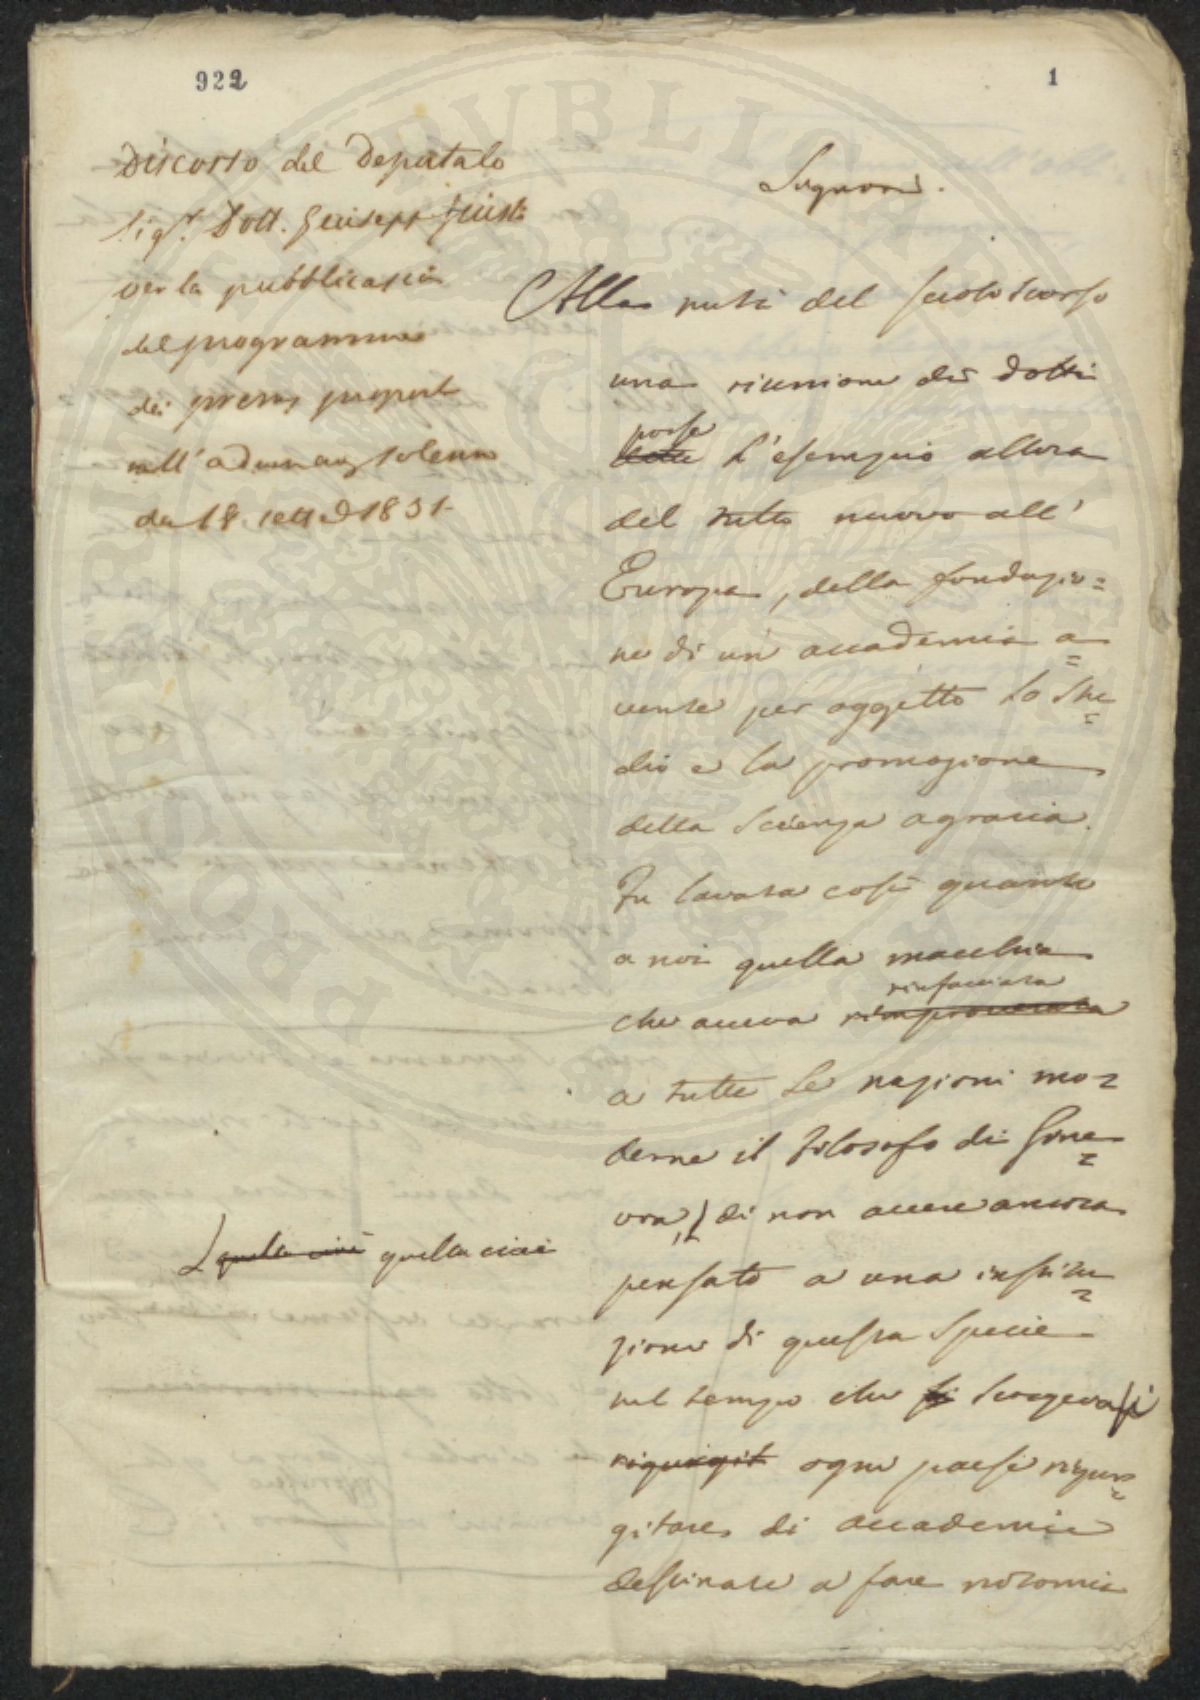 922
1
Discorso del Deputato
Sig.r Dott. Giuseppe Giusti
per la pubblicazi
del programma
dei premj propost
nell'adunanz solenne
de 18 sett. 1831
Signori.
Alla metà del secolo scorso
una riunione di dotti
porse
dette l'esempio allora
del tutto nuovo all'
Europa, della fondazio=
ne di un accademia a=
vente per oggetto lo stu=
dio e la promozione
della Scienza agraria.
Fu lavata così quanto
a noi quella macchia
rinfacciata
che aveva rimproverata
a tutte le nazioni mo=
derne il filosofo di Gine=
vra, di non avere ancora
quella cioè quella cioè
pensato a una institu=
zione di questa specie
nel tempo che si scorgevasi
ogni paese rigur=
gitare di accademie
destinate a fare notomia
PUBLIC